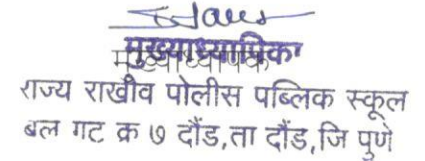 मुख्याध्यापिका
राज्य राखीव पोलीस पब्लिक स्कूल
बल गट क्र ७ दौंड,ता दौंड,जि पुणे